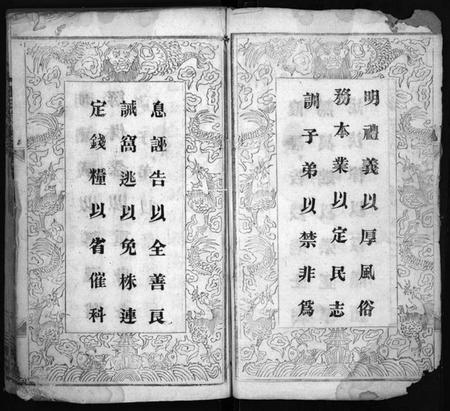 明禮義以厚風俗
務本業以定民志
訓子弟以禁非爲
息誣告以全善良
誡窩逃以免株連
定錢糧以省催科